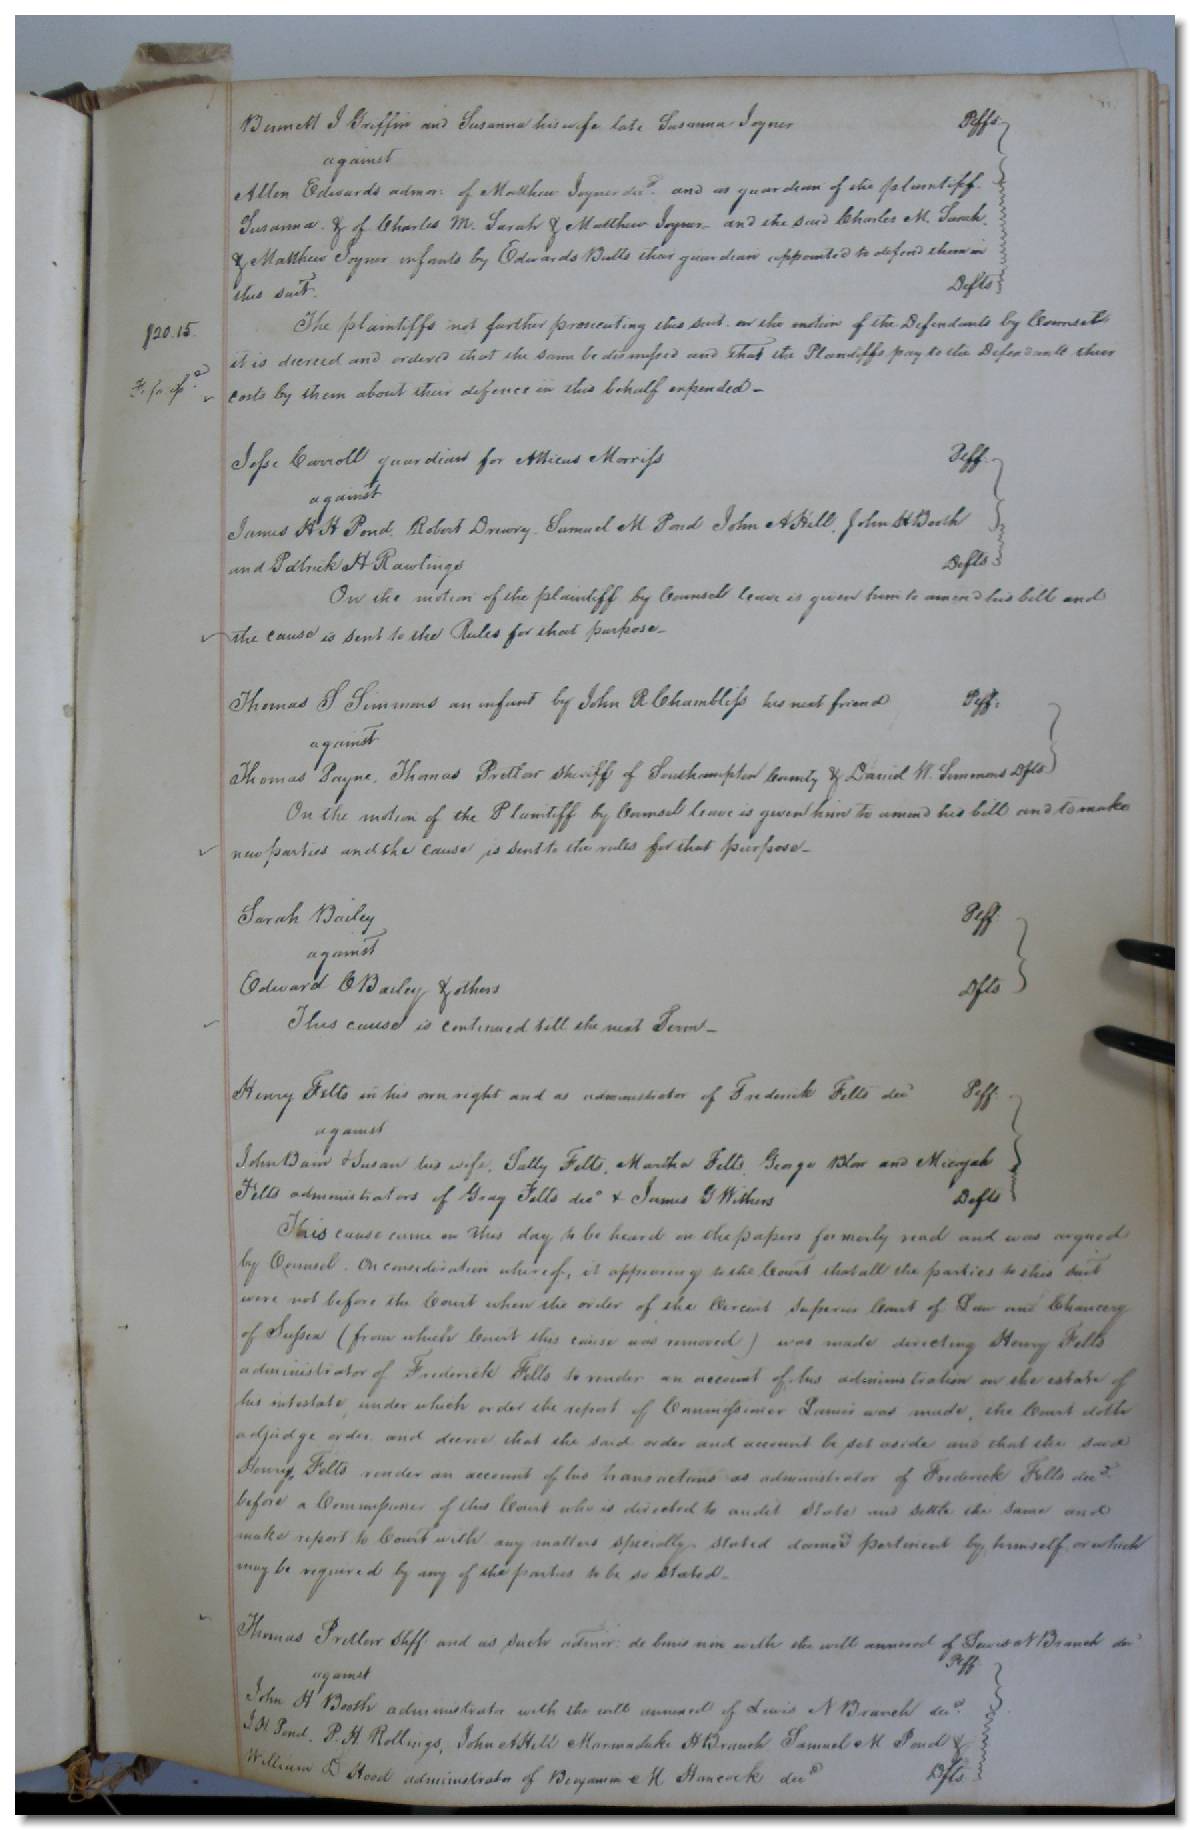 Bennett J Griffin and Susanna his wife late Susanna Joyner Plffs
against
Allen Edwards admor: of Matthew Joyner decd. and as guardian of the plaintiff
Susanna & of Charles M. Sarah & Matthew Joyner and the said Charles M. Sarah
& Matthew Joyner infants by Edwards Butts their guardian appointed to defend them in
this suit. Defts
The plaintiffs not further prosecuting this suit on the motion of the Defendants by Counsel
$20.15
it is decreed and ordered that the same be dismissed and that the Plaintiffs pay to the Defendants their
costs by them about their defence in this behalf expended –
Jesse Carroll guardian for Atticus Morriss Plff.
against
James H H Pond, Robert Drewry, Samuel M Pond John A Hill, John H Booth
and Patrick H Rawlings Defts
On the motion of the plaintiff by Counsel leave is given him to amend his bill and
the cause is sent to the Rules for that purpose –
Thomas S Simmons an infant by John R Chambliss his next friend Plff.
against
Thomas Payne, Thomas Pretlow Sheriff of Southampton County & Daniel W. Simmons Dfts
On the motion of the Plaintiff by Counsel leave is given him to amend his bill and to make
new parties and the cause is sent to the rules for that purpose –
Sarah Bailey Plff.
against
Edward C Bailey & others Dfts
This cause is continued till the next Term –
Henry Felts in his own right and as administrator of Frederick Felts decd Plff.
against
John Bain & Susan his wife, Sally Felts, Martha Felts, George Blow and Micajah
Felts administrators of Gray Felts decd & James G Withers Defts
This cause came on this day to be heard on the papers formerly read and was argued
by Counsel. On consideration whereof, it appearing to the Court that all the parties to this suit
were not before the Court when the order of the Circuit Superior Court of Law and Chancery
of Sussex (from which Court this cause was removed) was made directing Henry Felts
administrator of Frederick Felts to render an account of his administration on the estate of
his intestate, under which order the report of Commissioner was made, the Court doth
adjudge order and decree that the said order and account be set aside and that the said
Henry Felts render an account of his transactions as administrator of Frederick Felts decd.
before a Commissioner of this Court who is directed to audit state and settle the same and
make report to Court with any matters specially stated deemed pertinent by himself, or which
may be required by any of the parties to be so stated –
Thomas Pretlow Shff. and as such admor: de bonis non with the will annexed of Lewis N Branch decd
Plff
against
John H Booth administrator with the will annexed of Lewis N Branch decd.
J. H. Pond, P. H. Rollings, John A Hill Marmaduke H Branch Samuel M Pond &
William D Hood administrator of Benjamin M Hancock decd Dfts